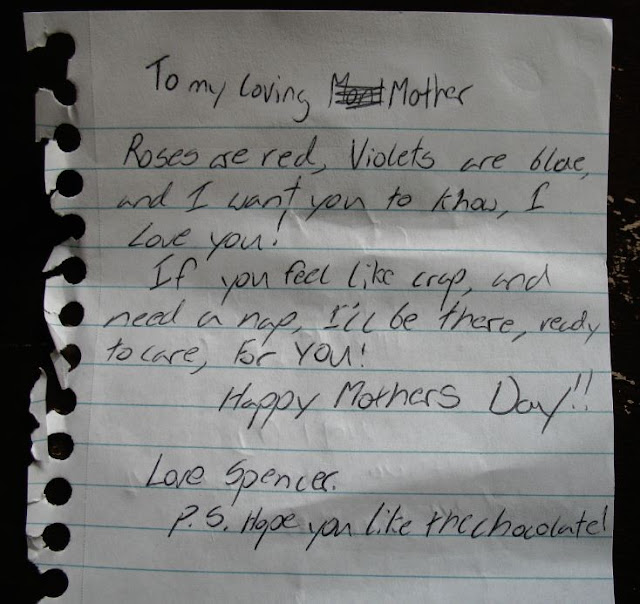 To my loving Mother
Roses are red, Violets are blue,
and I want you to know, I
Love you!
If you feel like crap, and
need a nap, I'll be there, ready
to care, For YOU!
Happy Mothers Day!!
Love Spencer.
P.S. Hope you like the chocolate!